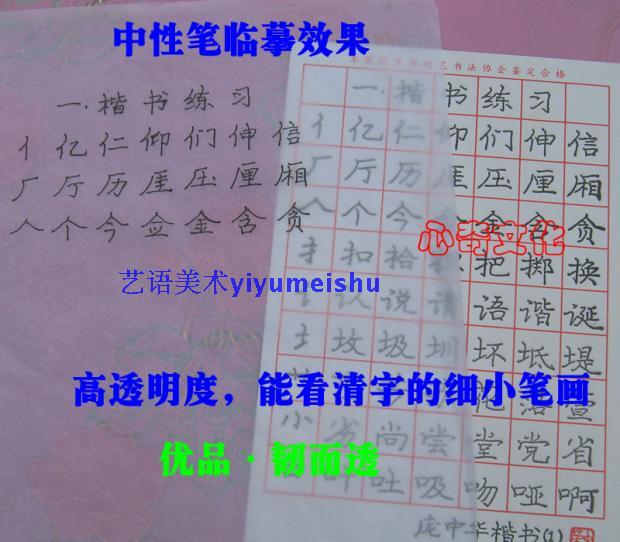 中性笔临摹效果
书法协会鉴定合格
一.楷书练习
亻亿仁仰们伸信
厂厅历厓压厘厢
人个今佥金含贪
一.楷书练习
亻亿仁仰们伸信
厂厅历厓压厘厢
个今金含贪
心奇文化
扌扣拾把掷换
艺语美术yiyumeishu
讠认说请语谐诞
土坟圾圳坏坻堤
高透明度，能看清字的细小笔画
萱
小劣尚尝堂党省
优品·韧而透
吐吸吻哑啊
庞中华楷书(1)